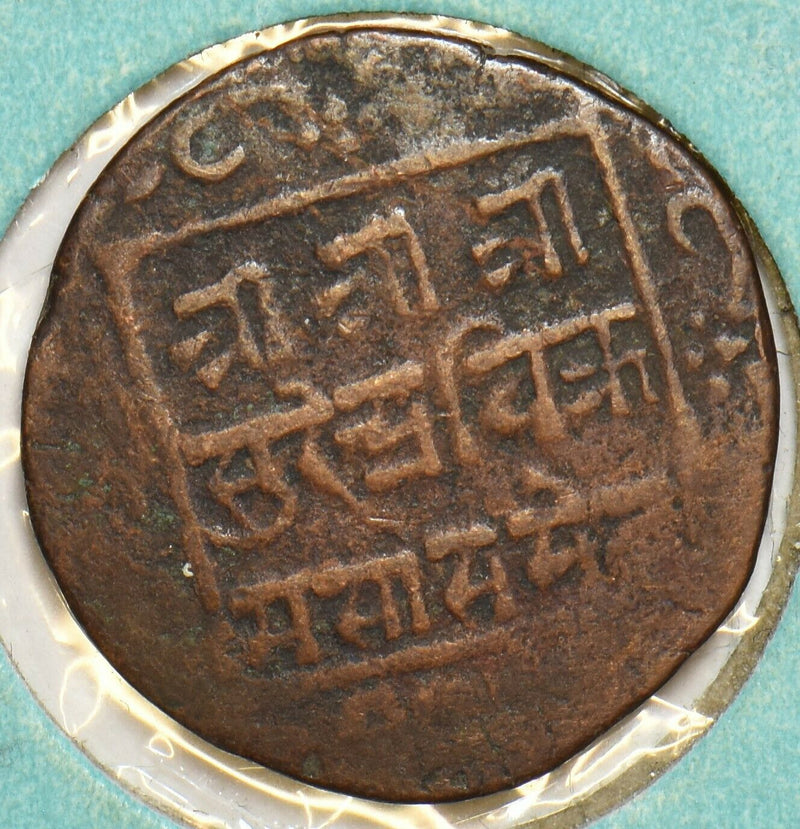 श्री श्री श्री
सुरेन्द्र विक्र
मसाहदेव